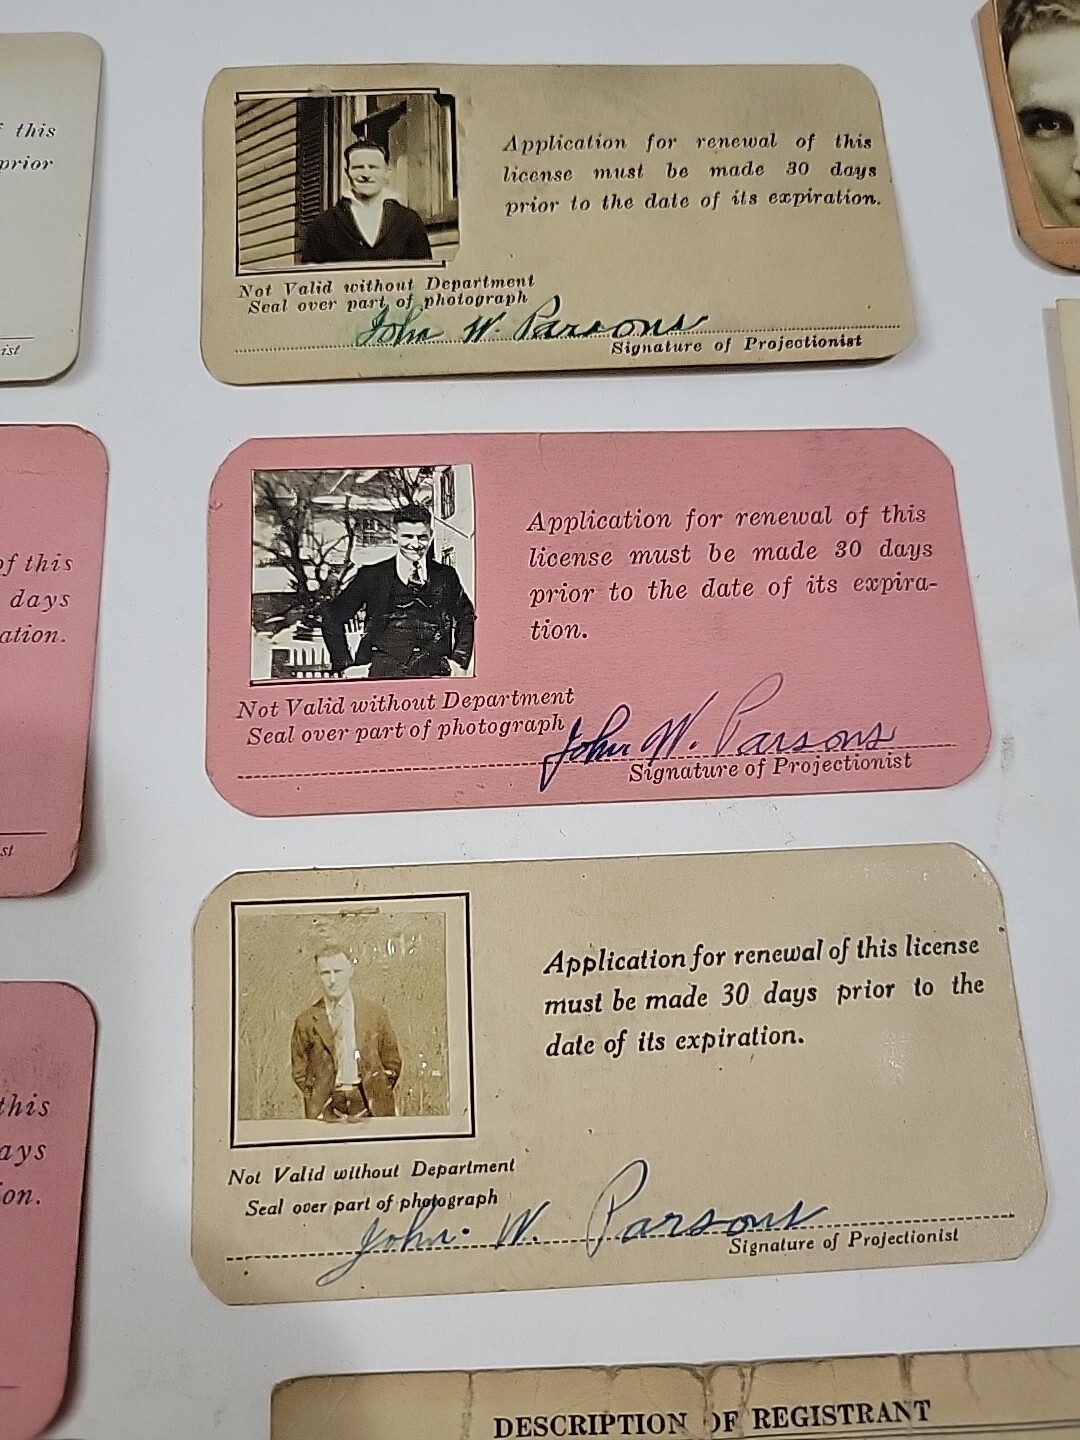 f this
prior
ist
Application for renewal of this
license must be made 30 days
prior to the date of its expiration.
Not Valid without Department
Seal over part of photograph
John W. Parsons
Signature of Projectionist
of this
days
ation.
st
Application for renewal of this
license must be made 30 days
prior to the date of its expira-
tion.
Not Valid without Department
Seal over part of photograph
John W. Parsons
Signature of Projectionist
this
ays
on.
Application for renewal of this license
must be made 30 days prior to the
date of its expiration.
Not Valid without Department
Seal over part of photograph
John. W. Parsons
Signature of Projectionist
DESCRIPTION OF REGISTRANT